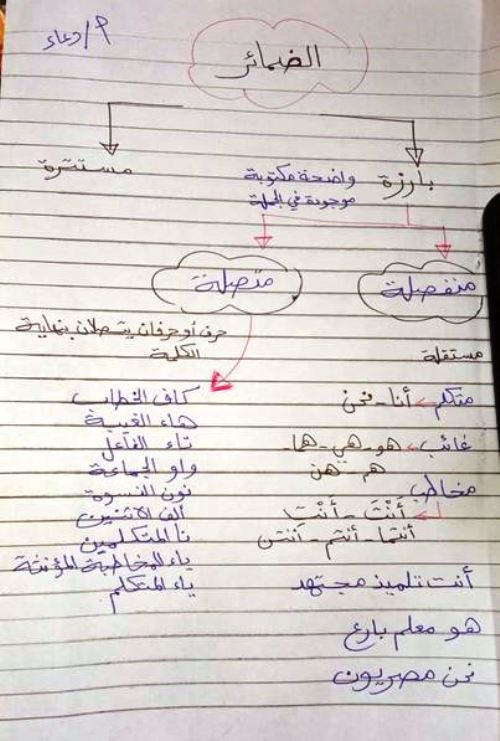 م/دعاء
الضمائر
بارزة
واضحة مكتوبة
موجودة في الجملة
مستترة
منفصلة
مستقلة
متكلم ← أنا - نحن
غائب ← هو - هي - هما -
هم - هن
مخاطب
أنتَ - أنتِ
أنتما - أنتم - أنتن
أنت تلميذ مجتهد
هو معلم بارع
نحن مصريون
متصلة
حرف أو حرفان يتصلان بنهاية
الكلمة
كاف الخطاب
هاء الغيبة
تاء الفاعل
واو الجماعة
نون النسوة
ألف الاثنين
نا المتكلمين
ياء المخاطبة المؤنثة
ياء المتكلم